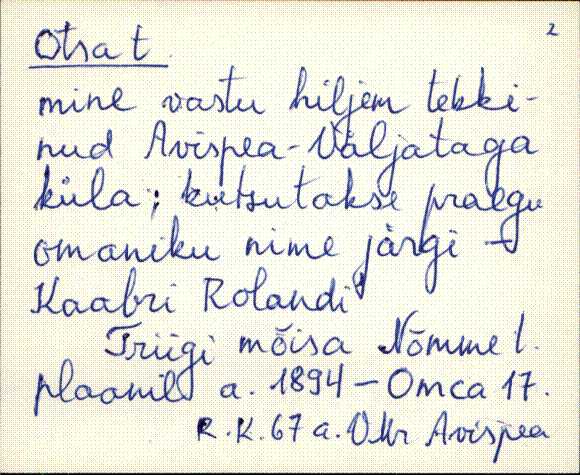 2
Otsa t.
mine vastu hiljem tekki-
nud Avispea-Väljataga
küla; kutsutakse praegu
omaniku nime järgi -
Kaabri Rolandi
Triigi mõisa Nõmme l.
plaanil a. 1894 - Omca 17.
R.K. 67 a. VMr Avispea